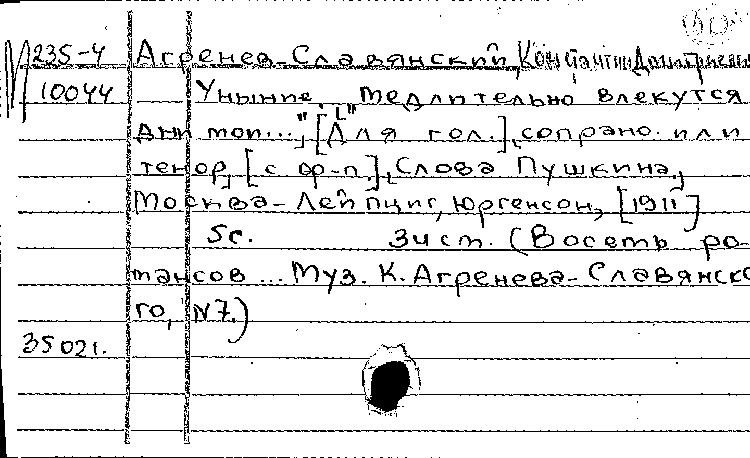 М 235-4 Агренев-Славянский, Константин Дмитриевич
10044 Уныние. "Медлительно влекутся
дни мои...", [Для гол.], сопрано или
тенор, [с ф-п.], Слова Пушкина.,
Москва-Лейпциг, Юргенсон, [1911]
5с. 3ист. (Восемь ро-
мансов... Муз. К. Агренева-Славянско
го, N7.)
35021.